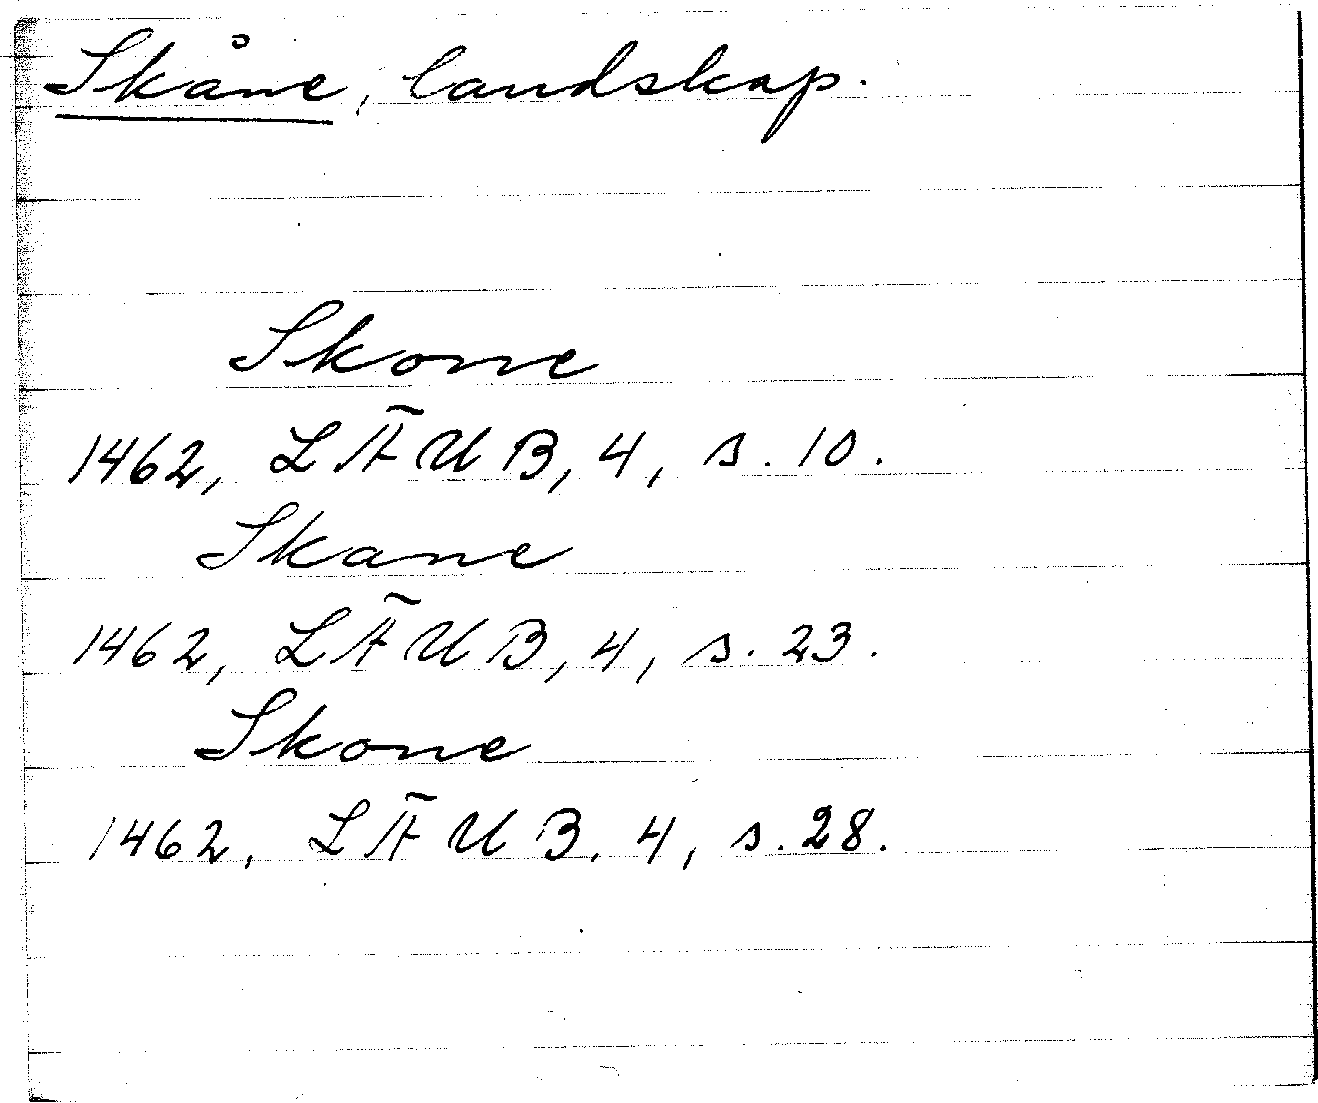 Skåne, landskap.
Skone
1462, LÄUB, 4, s. 10.
Skane
1462, LÄUB, 4, s. 23.
Skone
1462, LÄUB. 4, s. 28.